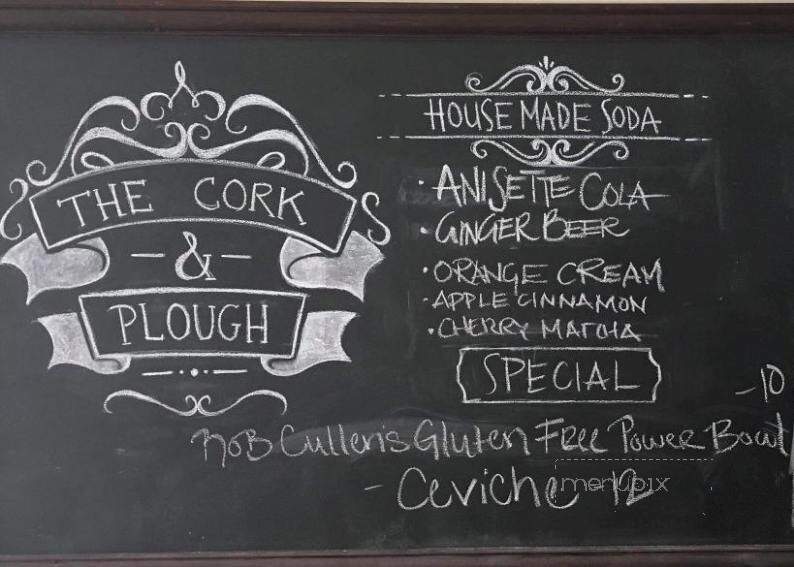 THE CORK
- & -
PLOUGH
HOUSE MADE SODA
· ANISETTE COLA
· GINGER BEER
· ORANGE CREAM
· APPLE CINNAMON
· CHERRY MATCHA
SPECIAL
-10
ROB Cullen's Gluten Free Power Bowl
- Ceviche 12
menupix